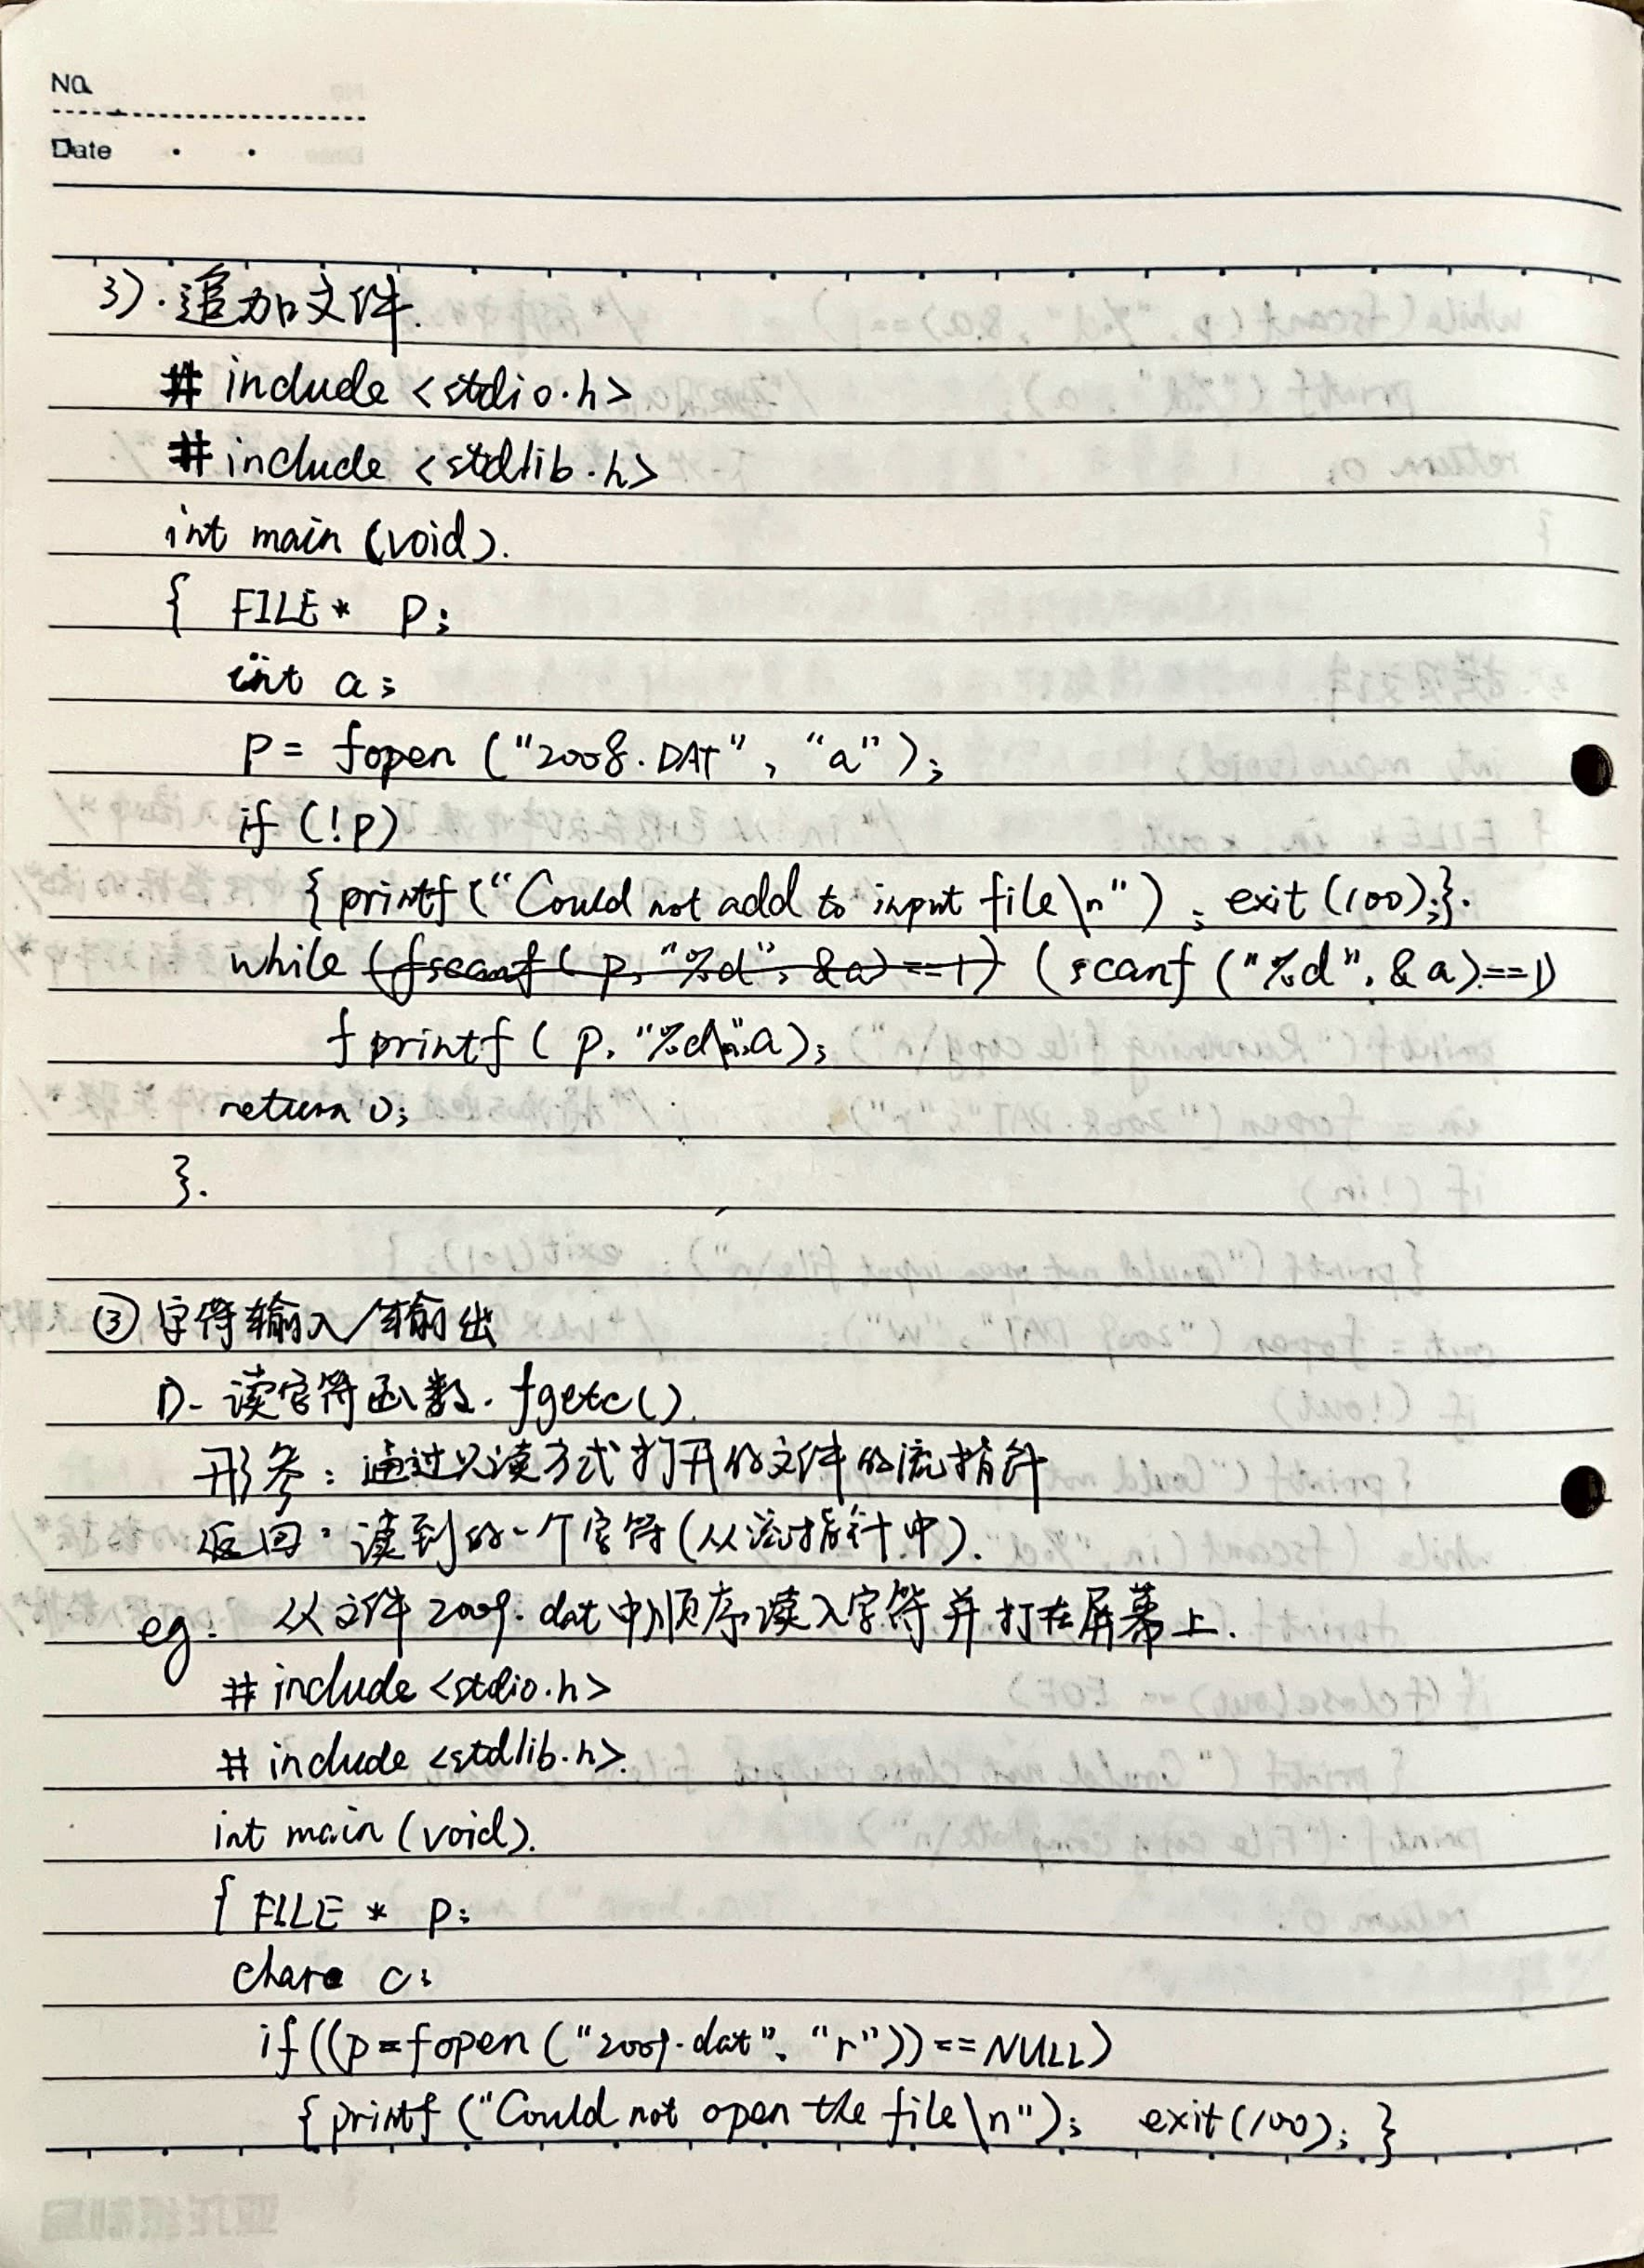 No.
Date
3). 追加文件.
# include <stdio.h>
# include <stdlib.h>
int main (void).
{ FILE * p;
int a;
p = fopen ("2008.DAT", "a");
if (!p)
{ printf ("Could not add to input file\n") ; exit (100);}.
while (fscanf ( p, "%d", &a) ==1) (scanf ("%d", &a)==1)
fprintf ( p, "%d\n",a);
return 0;
}.
③ 字符输入/输出
1). 读字符函数. fgetc().
形参: 通过只读方式打开的文件的流指针
返回: 读到的一个字符(从流指针中).
eg. 从文件 2009.dat中顺序读入字符并打在屏幕上.
# include <stdio.h>
# include <stdlib.h>.
int main (void).
{ FILE * p;
char c;
if((p=fopen ("2009.dat", "r"))==NULL)
{ printf ("Could not open the file\n"); exit(100); }